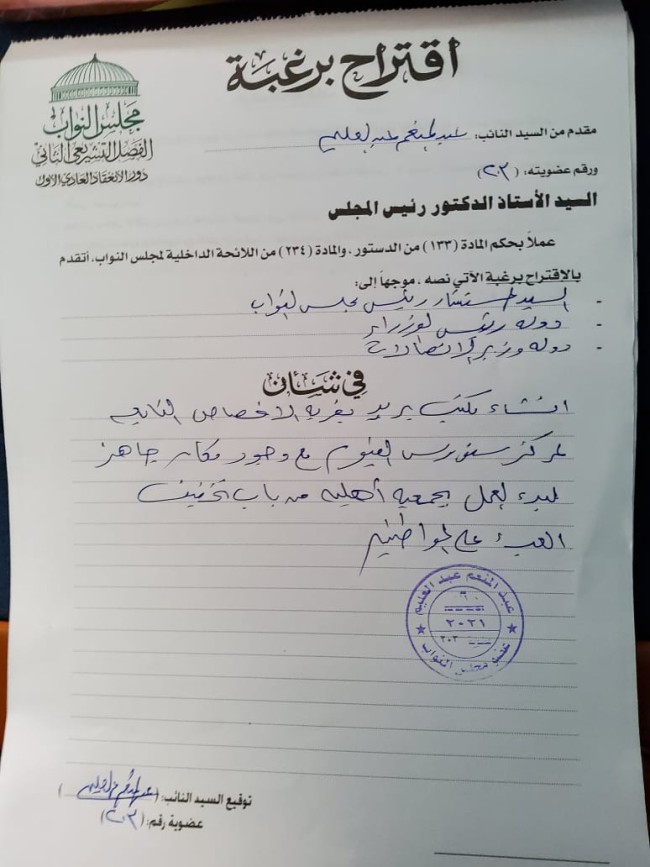 اقتراح برغبة
مجلس النواب
الفصل التشريعى الثانى
دور الانعقاد العادى الأول
مقدم من السيد النائب: عبد المنعم عبد العليم
ورقم عضويته: (٢٠٣)
السيد الأستاذ الدكتور رئيس المجلس
عملاً بحكم المادة (١٣٣) من الدستور، والمادة (٢٣٤) من اللائحة الداخلية لمجلس النواب، أتقدم
بالاقتراح برغبة الآتي نصه، موجهاً إلى:
- السيد المستشار رئيس مجلس النواب
- دولة رئيس الوزراء
- دولة وزير الاتصالات
في شأن
انشاء مكتب بريد بقرية الاخصاص التابعه
لمركز سنورس الفيوم مع وجود مكان جاهز
لبدء العمل بجمعيه أهليه من باب تخفيف
العبء على المواطنين
عبد المنعم عبد العليم
٢٠٢١
٢٠٣
عضو مجلس النواب
توقيع السيد النائب: (عبد المنعم عبد العليم)
عضوية رقم: (٢٠٣)